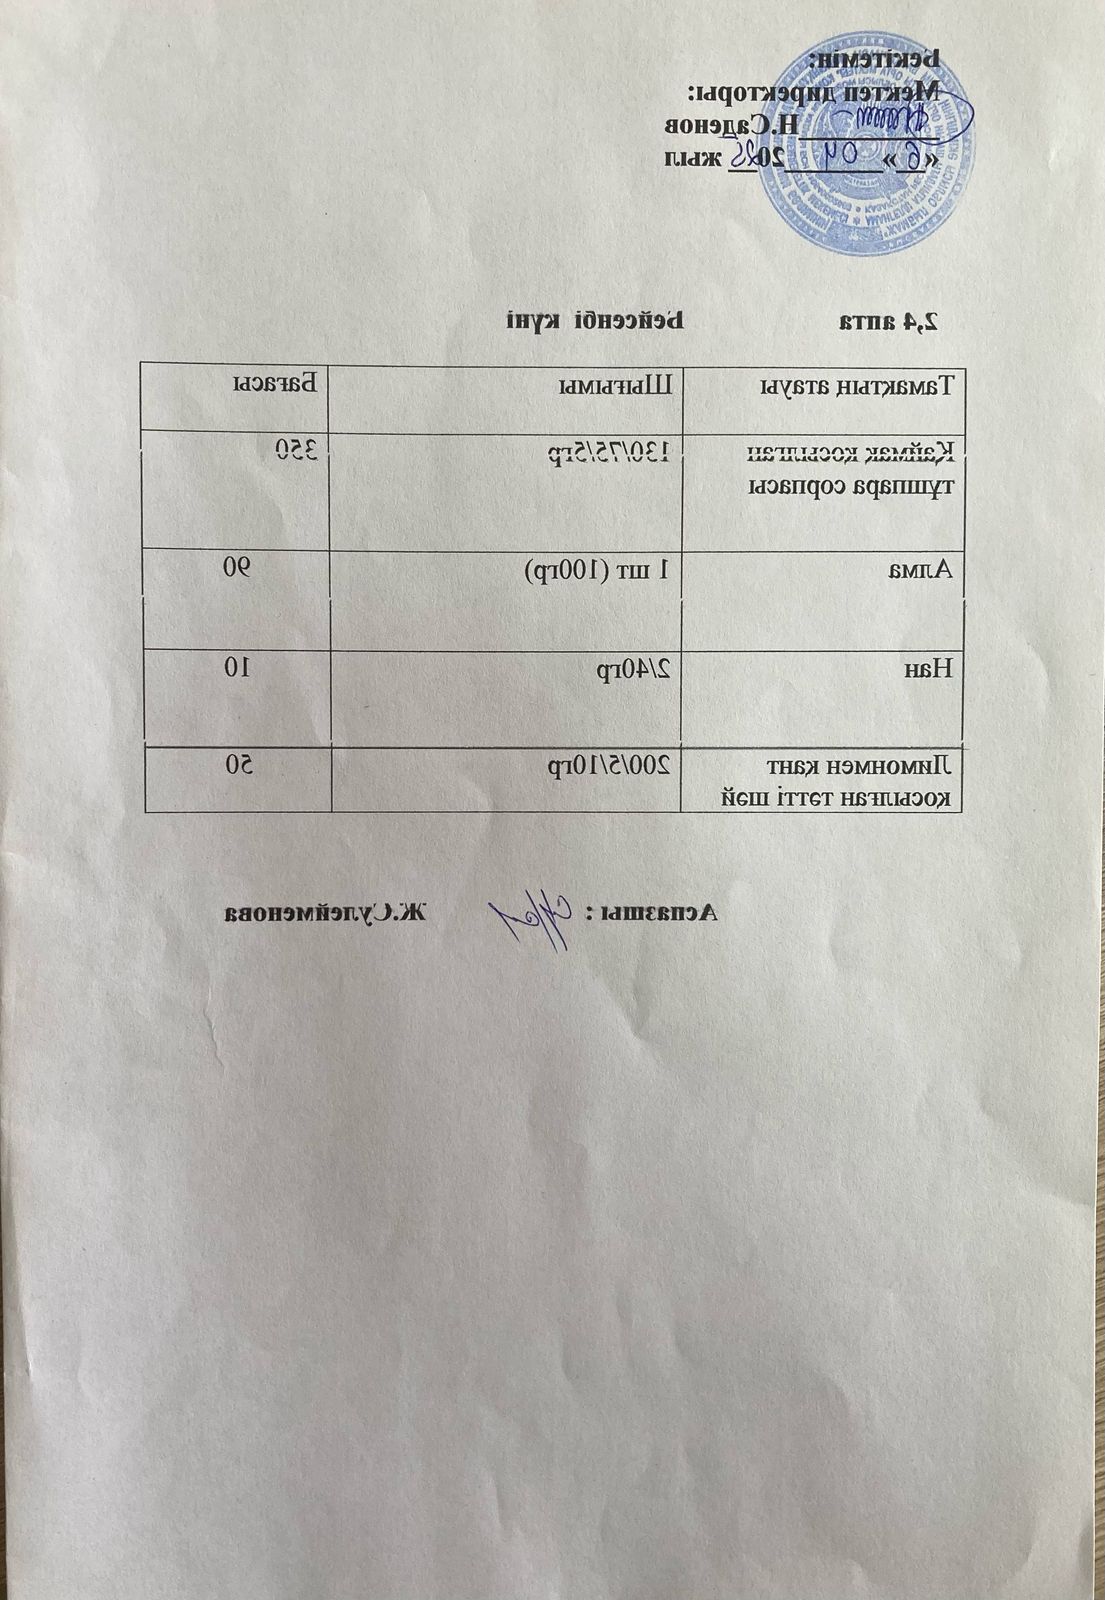 Бекітемін:
Мектеп директоры:
Н.Саденов
«6» 04 2025 жыл
2,4 апта Бейсенбі күні
Тамақтың атауы Шығымы Бағасы
Қаймақ қосылған 130/75/5гр 350
тұшпара сорпасы
Алма 1 шт (100гр) 90
Нан 2/40гр 10
Лимонмен қант 200/5/10гр 50
қосылған тәтті шәй
Аспазшы : Ж.Сулейменова